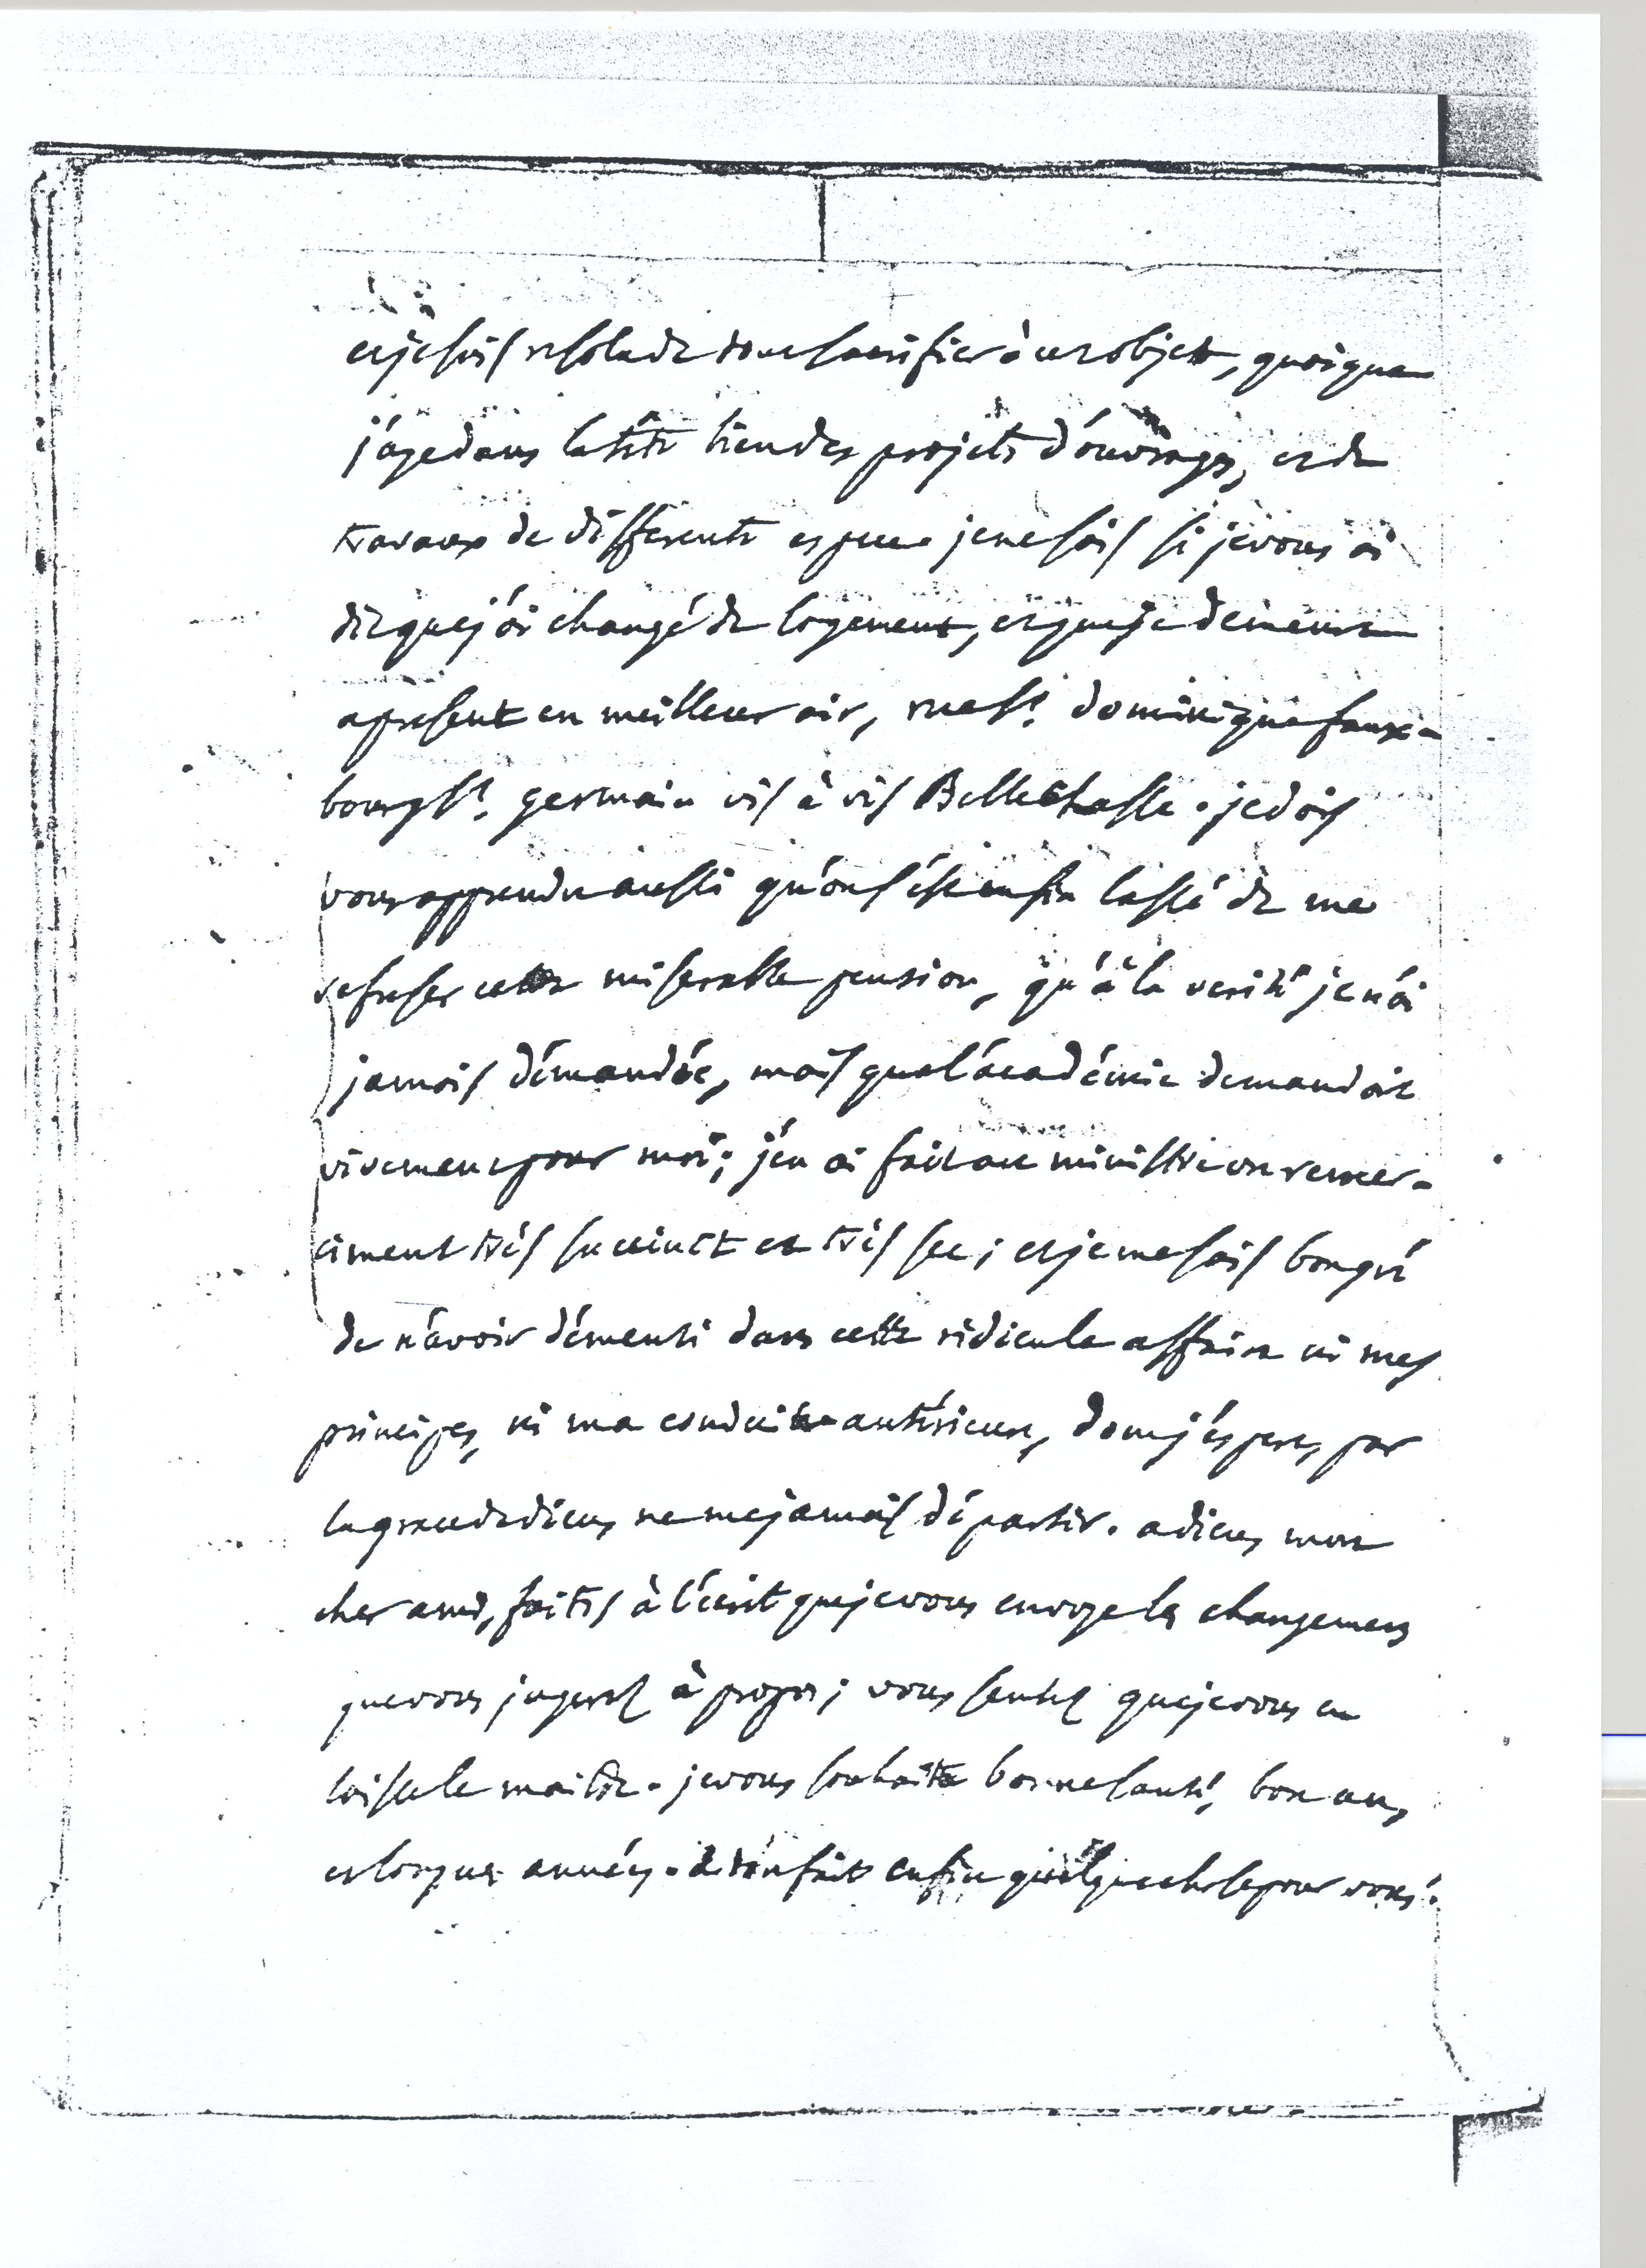 et je suis resolu de tout sacrifier à cet objet, quoique
j'aye dans la tête bien des projets d'ouvrages, et de
travaux de differente espece. je ne sais si je vous ai
dit que j'ai changé de logement, et que je demeure
apresent en meilleur air, rue St. dominique faux-
bourg St. germain vis à vis Bellechasse. je dois
vous apprendre aussi qu'on s'est enfin lassé de me
refuser cette miserable pension, qu'à la verité je n'ai
jamais démandée, mais que l'académie demandoit
vivement pour moi; j'en ai fait au ministre un remer-
ciment très succinct et très sec; et je me sais bon gré
de n'avoir démenti dans cette ridicule affaire ni mes
principes, ni ma conduite antérieure, dont j'espere, par
la grace de dieu, ne me jamais départir. adieu, mon
cher ami, faites à l'écrit que je vous envoye les changemens
que vous jugerez à propos; vous sentez que je vous en
laisse le maitre. je vous souhaite bonne santé, bon an,
et longues années. a t'on fait enfin quelque chose pour vous?